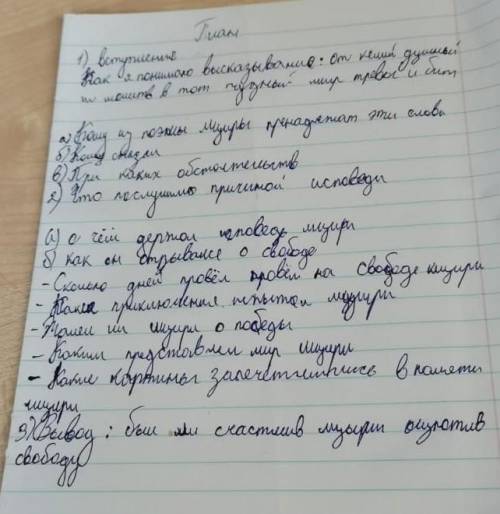 План
1) вступление
Как я понимаю высказывание: от келий душных
и молитв в тот чудный мир тревог и битв
а) Кому из поэмы мцыри пренадлежат эти слова
б) Кому сказал
в) При каких обстоятельств
2) Что послушило причиной исповеди
а) о чём держал исповедь мцыри
б) как он отрывансе о свободе
- Сколько дней провёл провёл на свободе мцыри
- Какие приключения испытал мцыри
- Жалел ли мцыри о победы
- Каким представлял мир мцыри
- Какие картины запечетлились в памяти
мцыри
3) Вывод: был ли счастлив мцыри ощутив
свободу